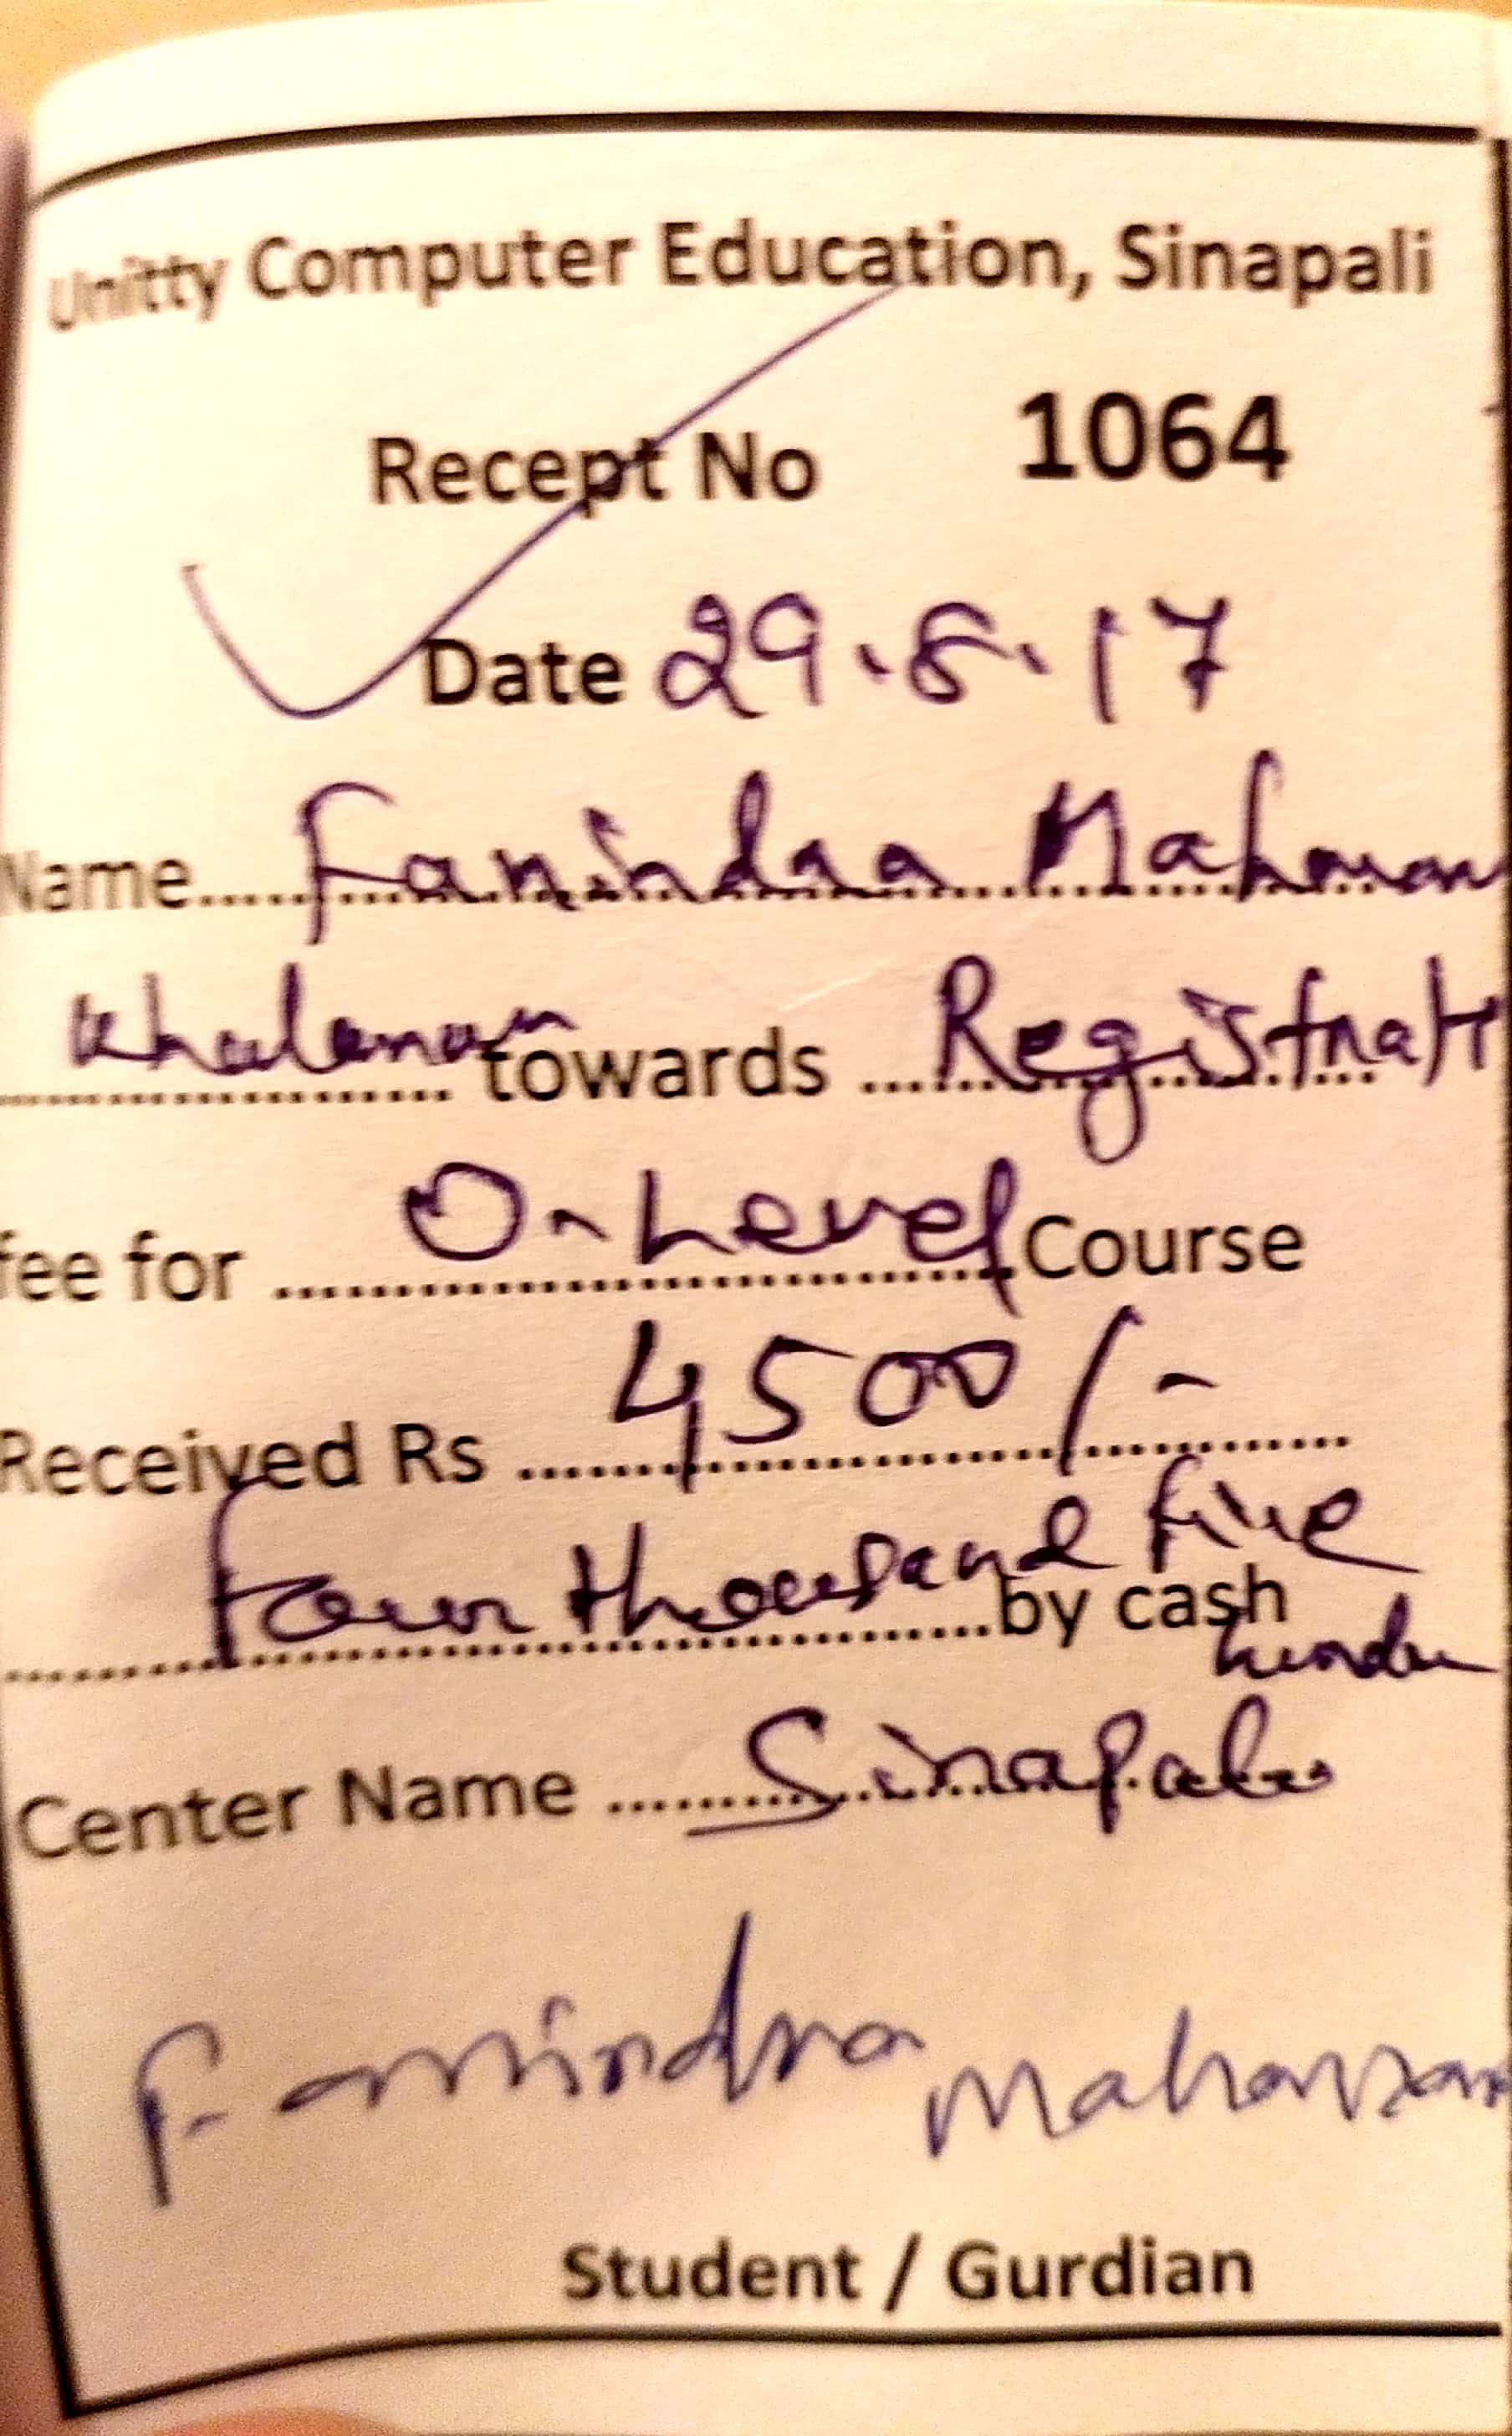 Unitty Computer Education, Sinapali
Recept No 1064
Date 29.8.17
Name.......Fanindra
towards .......Registrati
fee for .......O-Level Course
Received Rs .......4500/-
four thousand five
.......by cash
Center Name .......Sinapali
Fanindra
Student / Gurdian